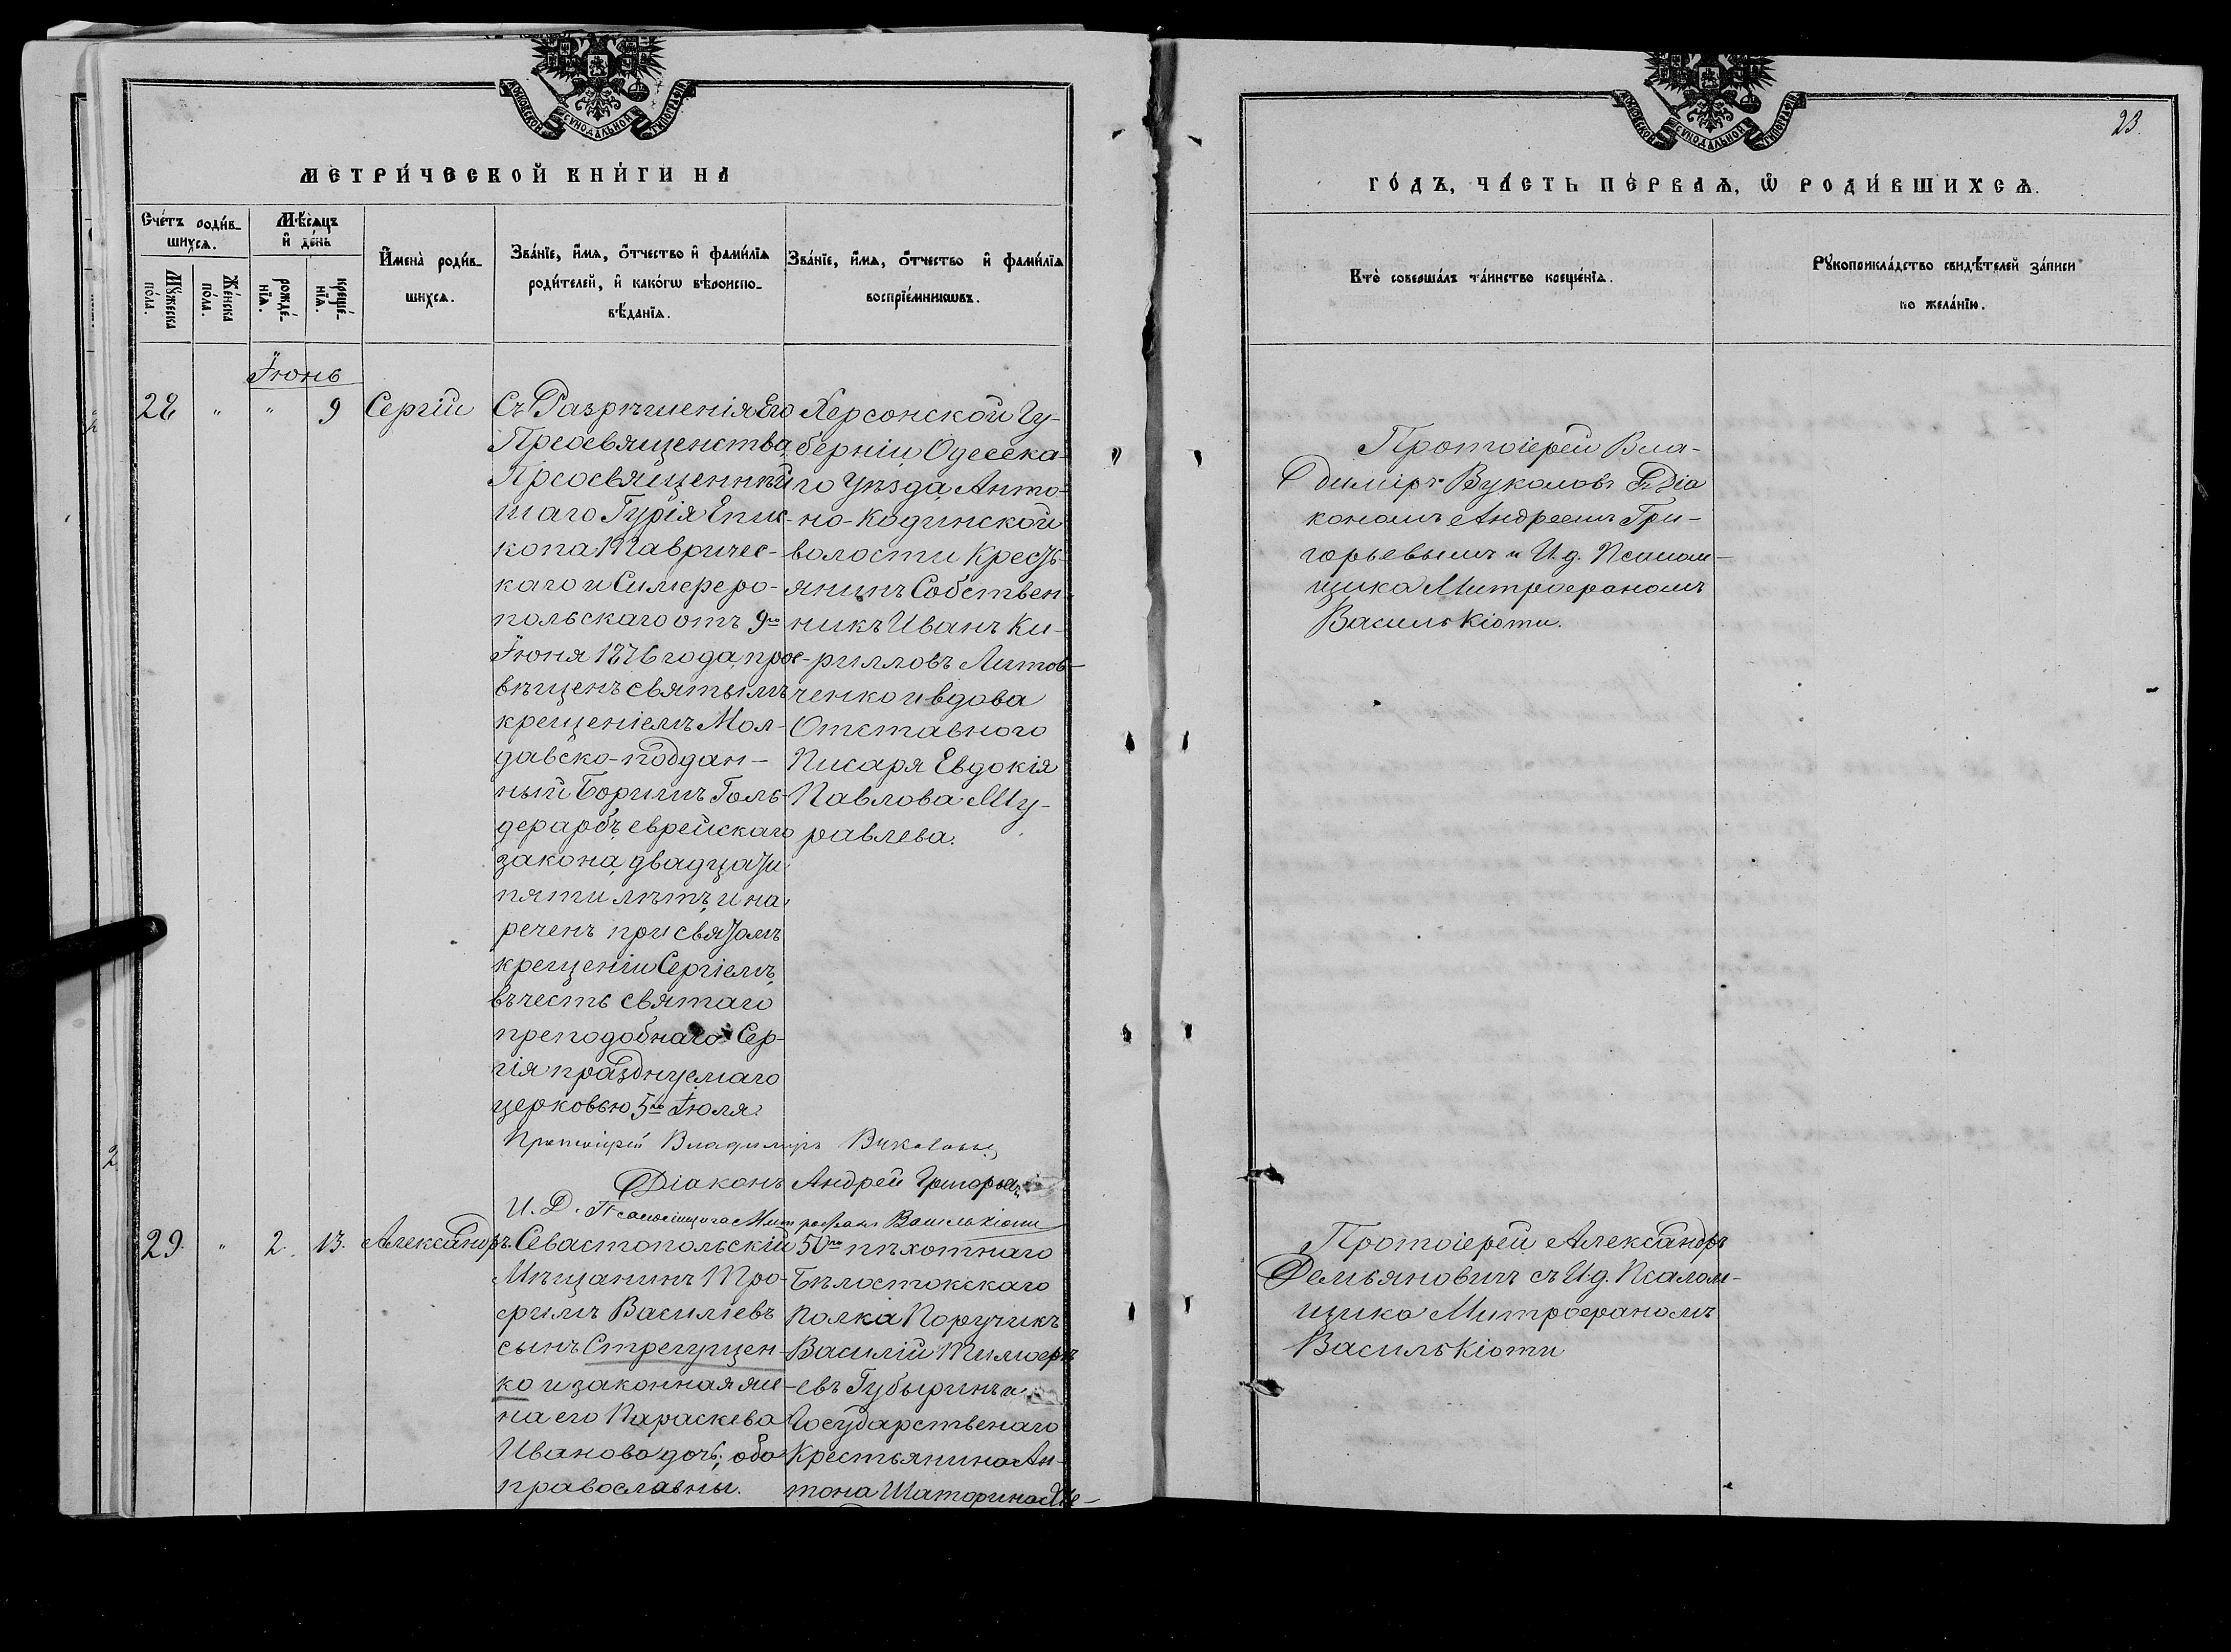 МОСКОВСКОЙ СѴНОДАЛЬНОЙ ТИПОГРАФІИ
МЕТРИ́ЧЕСКОЙ КНИ́ГИ НА
Сче́тъ роди́в-
шихсѧ.
Мѣ́сѧцъ
и҆ де́нь
И҆мена̀ роди́в-
шихсѧ.
Зва́нїе, и҆́мѧ, ѻ҆́тчество и҆ фами́лїѧ
роди́телей, и҆ како́гѡ вѣроиспо-
вѣ́данїѧ.
Зва́нїе, и҆́мѧ, ѻ҆́тчество и҆ фами́лїѧ
воспрїе́мникѡвъ.
Мꙋ́жеска
по́ла.
Же́нска
по́ла.
рожде́-
нїѧ.
креще́-
нїѧ.
Іюнь
28 " " 9 Сергій
Съ Разрѣшенія Его
Преосвященства,
Преосвященнѣй
шаго Гурія Епис-
копа Тавричес-
каго и Симферо-
польскаго отъ 9го
Іюня 1876 года, прос-
вѣщенъ святымъ
крещеніемъ Мол-
давско-поддан-
ный Борихъ Голь-
дерарбъ, еврейскаго
закона, двадцати
пяти лѣтъ, и на
реченъ при святомъ
крещеніи Сергіемъ,
въ честь святаго
преподобнаго Сер-
гія празднуемаго
церковью 5го Іюля.
Херсонской Гу-
берніи Одесска-
го Уѣзда Анто-
но-Кодинской
волости Кресть-
янинъ Собствен-
никъ Иванъ Ки-
рилловъ Литов-
ченко и вдова
Отставного
Писаря Евдокія
Павлова Му-
равлева.
Протоіерей Владимиръ Вуколовъ,
Діаконъ Андрей Григорьевъ
И. Д. Псаломщика Митрофанъ Василькіоти
29. " 2. 13. Александръ.
Севастопольскій
Мѣщанинъ Тро-
фимъ Василіевъ
сынъ Стрегущен-
ко и законная же-
на его Параскева
Иванова дочь, оба
православны.
50го пѣхотнаго
Бѣлостокскаго
полка Поручикъ
Василій Тимофе-
евъ Губыринъ и
Государственаго
Крестьянина Ан-
тона Шаторина
МОСКОВСКОЙ СѴНОДАЛЬНОЙ ТИПОГРАФІИ
23.
ГО́ДЪ, ЧА́СТЬ ПЕ́РВАѦ, Ѡ҆ РОДИ́ВШИХСѦ.
Кто̀ соверша́лъ та́инство креще́нїѧ.
Рꙋкоприкла́дство свидѣ́телей за́писи
по жела́нїю.
Протоіерей Вла-
димиръ Вуколовъ съ Діа
кономъ Андреемъ Гри-
горьевымъ и И. д. Псалом-
щика Митрофаномъ
Василькіоти.
Протоіерей Александръ
Демьяновичъ съ И. д. Псалом-
щика Митрофаномъ
Василькіоти